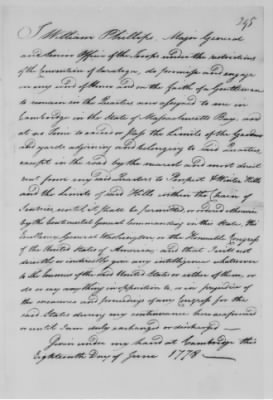 345
I William Phillips Major General
and Senior Officer of the Troops under the restrictions
of the Convention of Saratoga, do promise and engage
on my word of Honor and on the faith of a Gentleman
to remain in the Quarters now assigned to me in
Cambridge in the State of Massachusetts Bay, and
at no Time to exceed or pass the limits of the Gardens
and yards adjoining and belonging to said Quarters
except in the road by the nearest and most direct
rout from my said Quarters to Prospect & Winter Hills
and the limits of said Hills within the Chain of
Sentries, until it shall be permitted or ordered otherwise
by the Continental General Commanding in this State, His
Excellency General Washington or the Honorable Congress
of the United States of America; and that I will not
directly or indirectly give any intelligence whatsoever
to the Enemies of the said United States or either of them, or
do or say any thing in opposition to, or in prejudice of
the measures and proceedings of any Congress for the
said States during my continuance here as aforesaid
or until I am duly exchanged or discharged
Given under my hand at Cambridge this
Eighteenth Day of June 1778